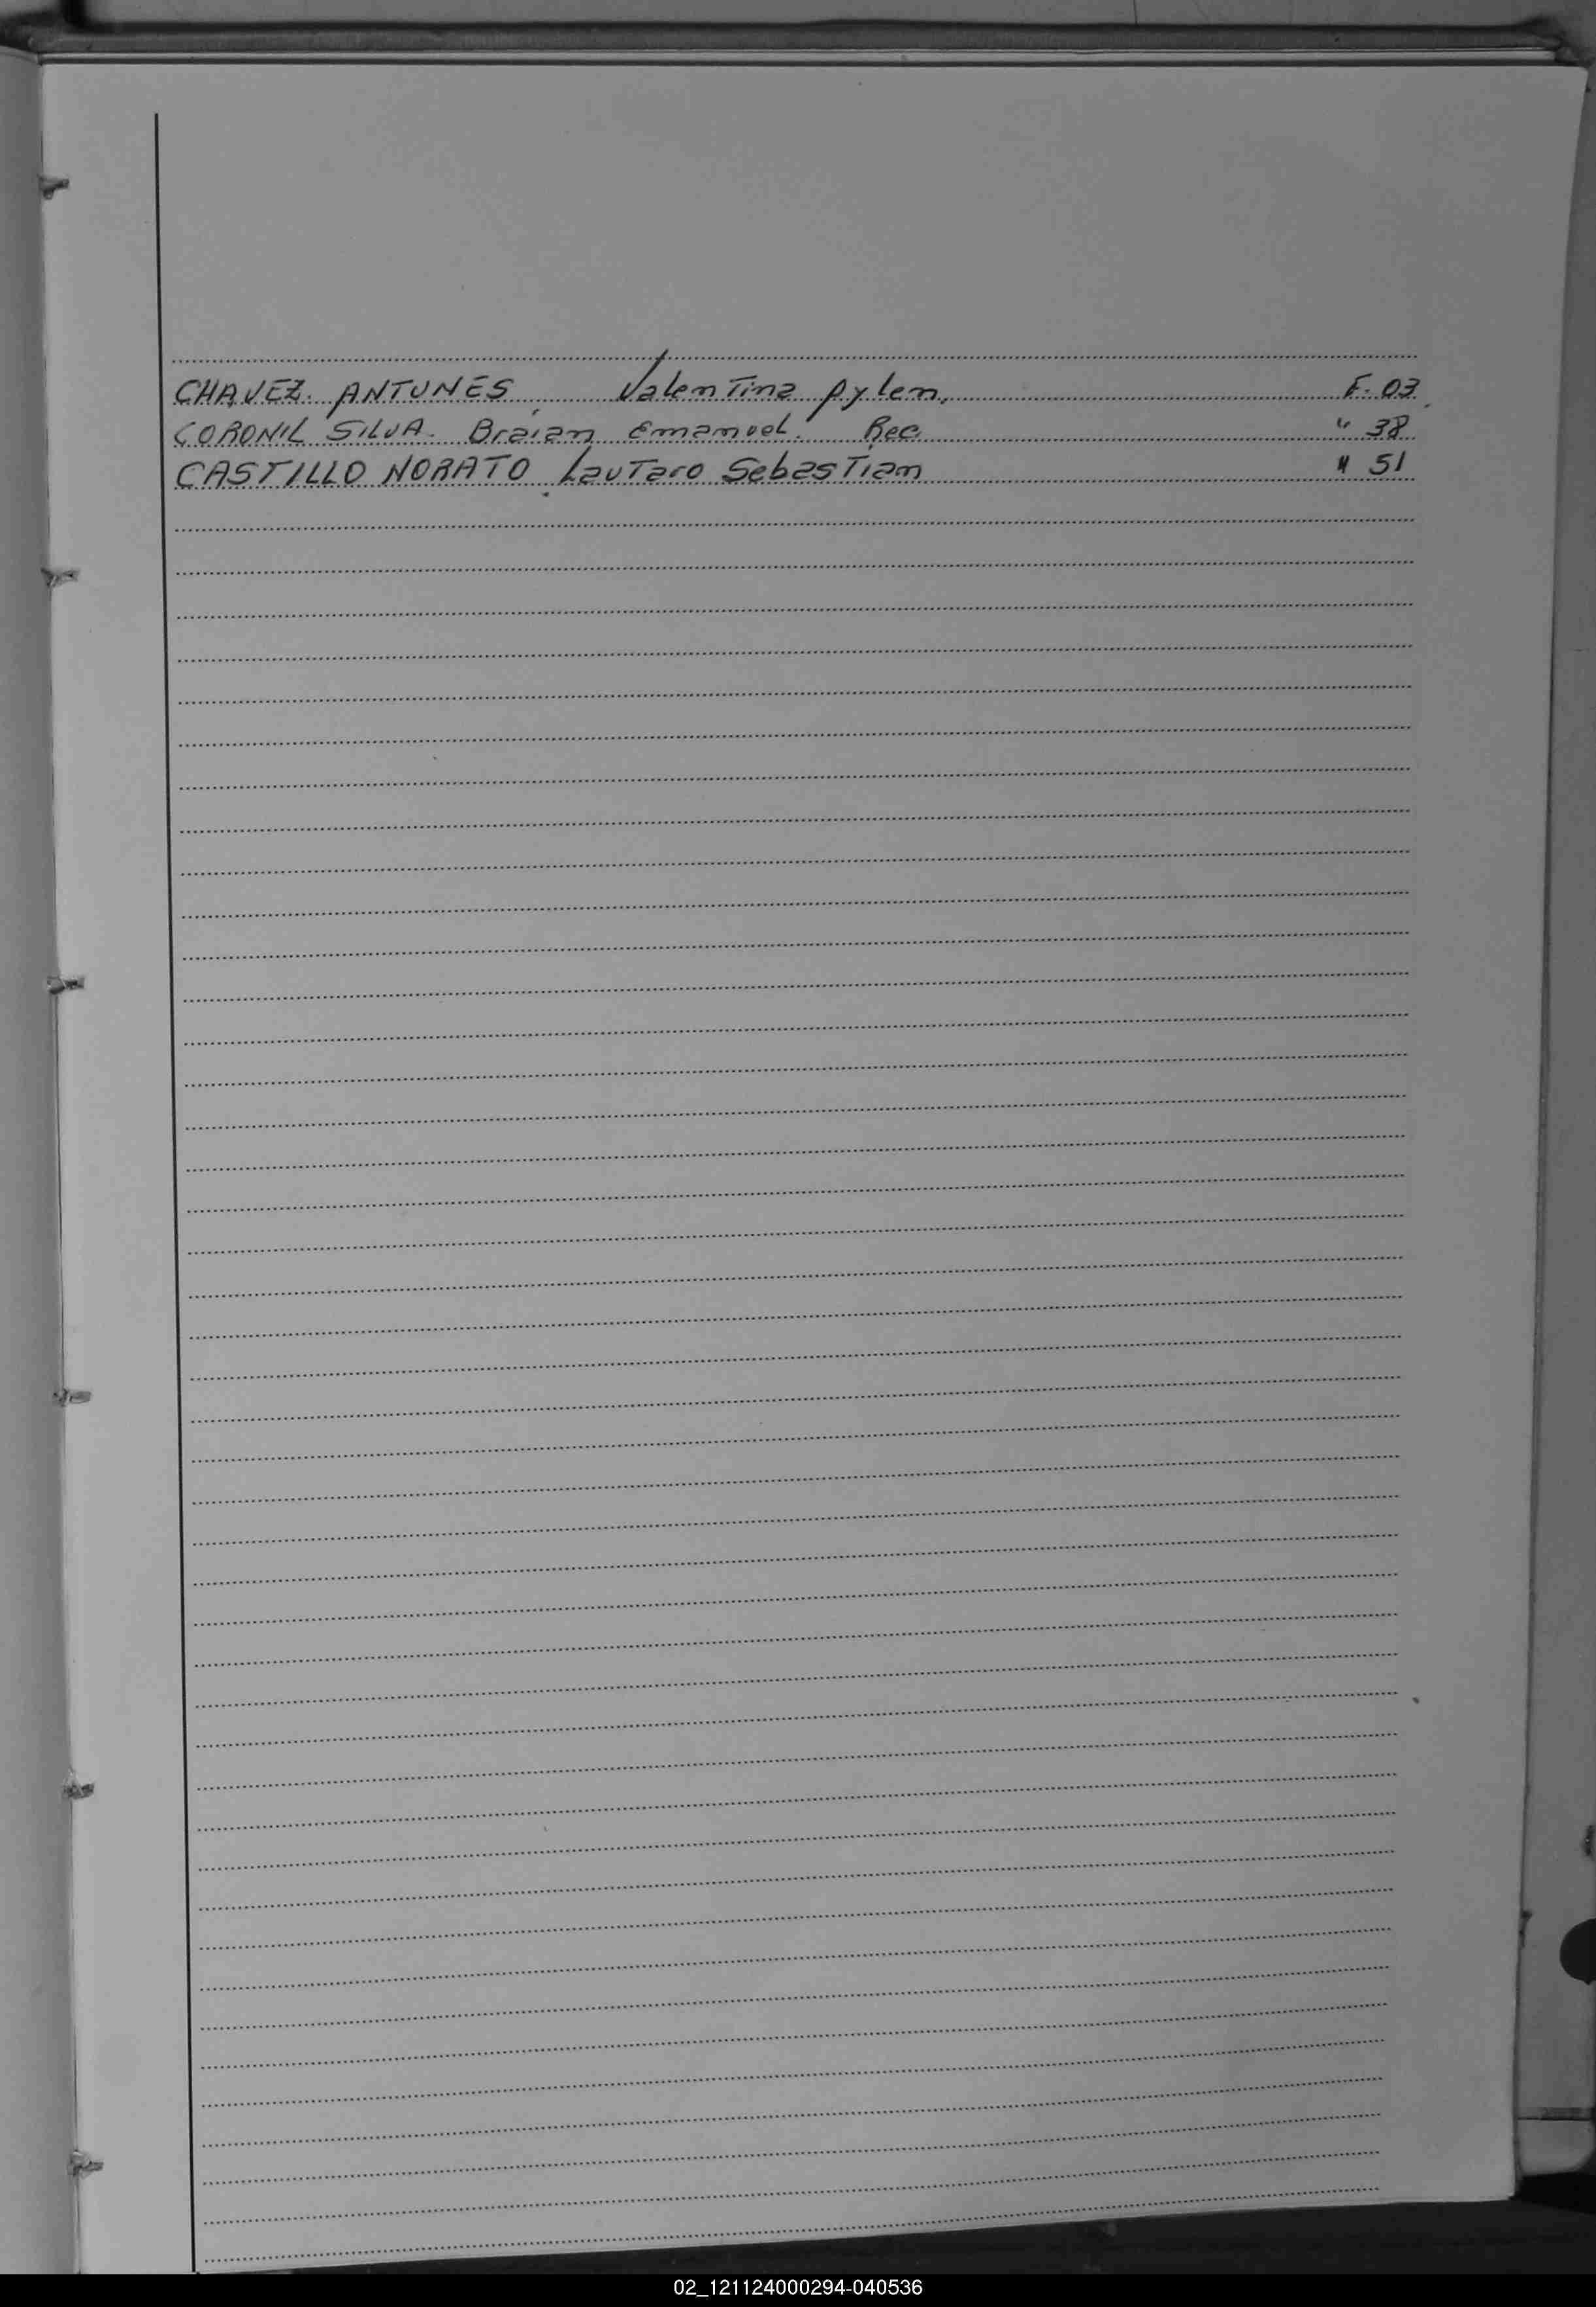 CHAVEZ. ANTUNES Valentina Aylen. F. 03
CORONIL SILVA. Braian Emanuel. Rec. " 38
CASTILLO NORATO Lautaro Sebastian " 51
02_121124000294-040536